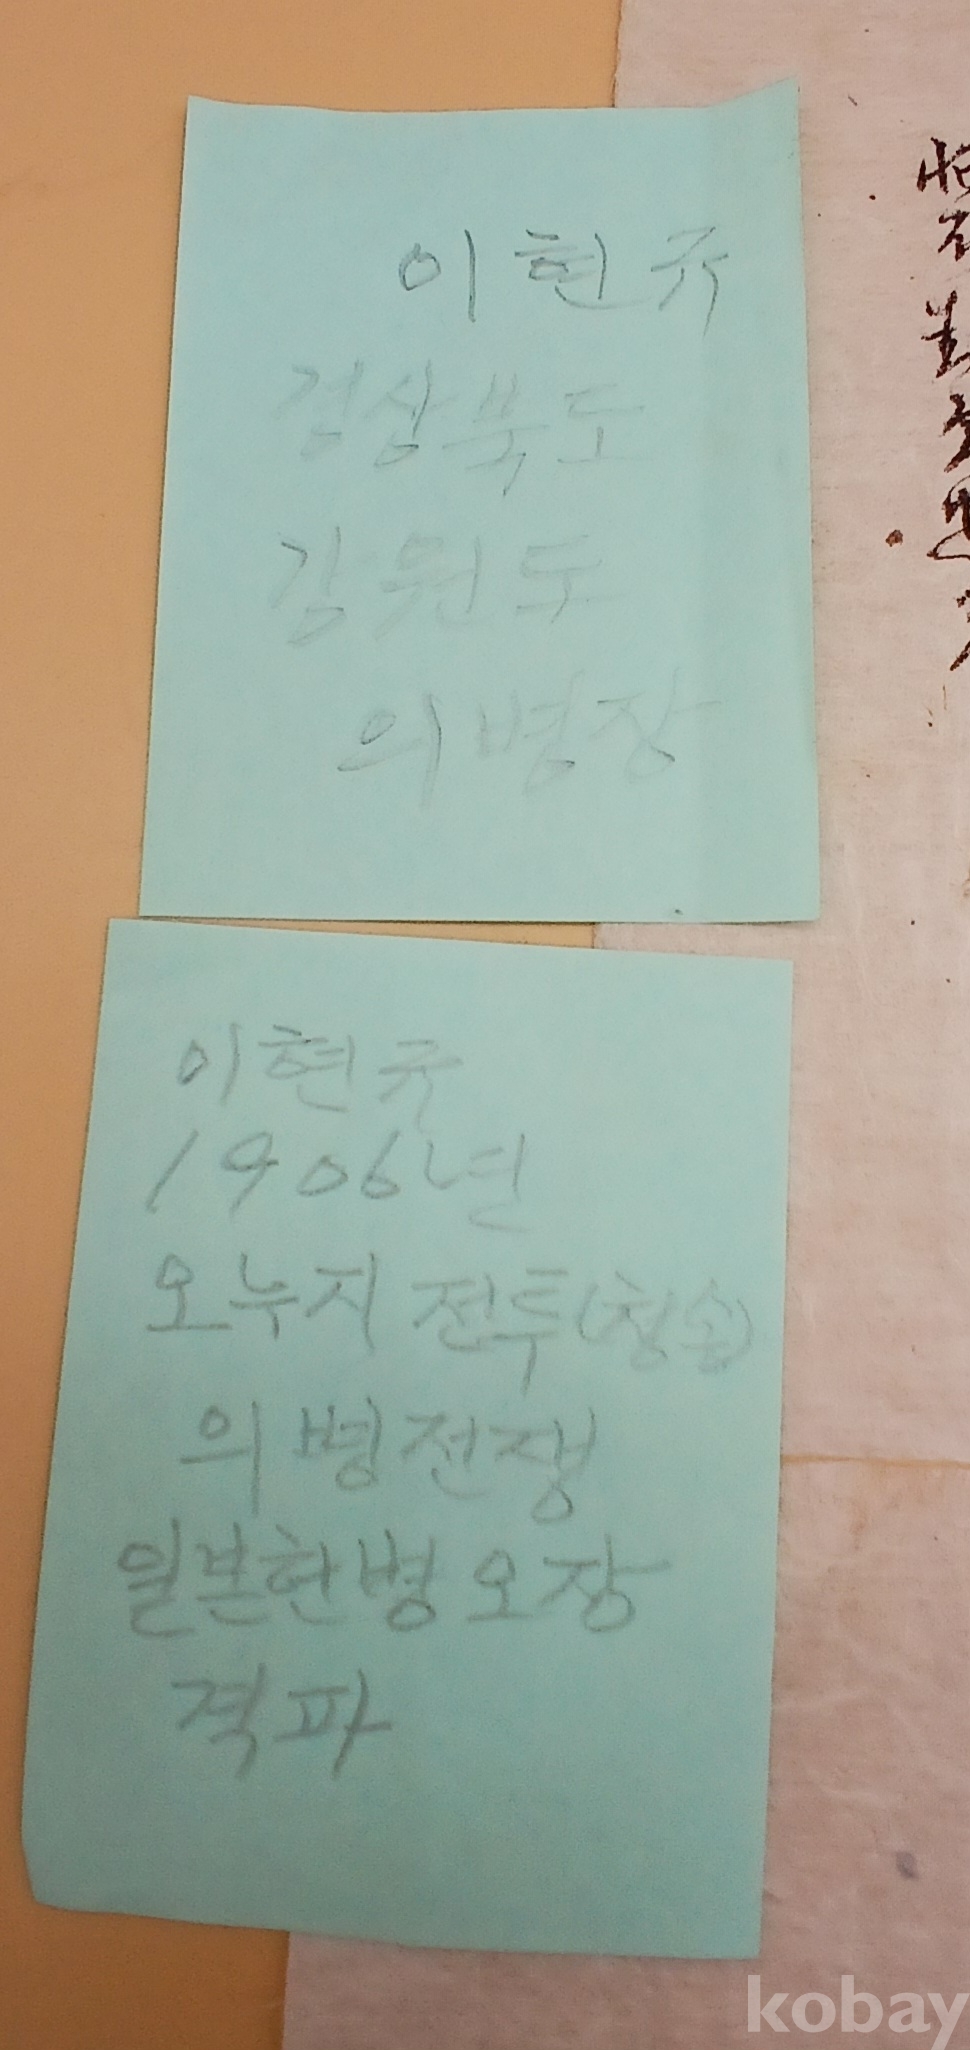 이현규
경상북도
강원도
의병장
이현규
1906년
오누지 전투(청송)
의병전쟁
일본헌병 오장
격파
kobay